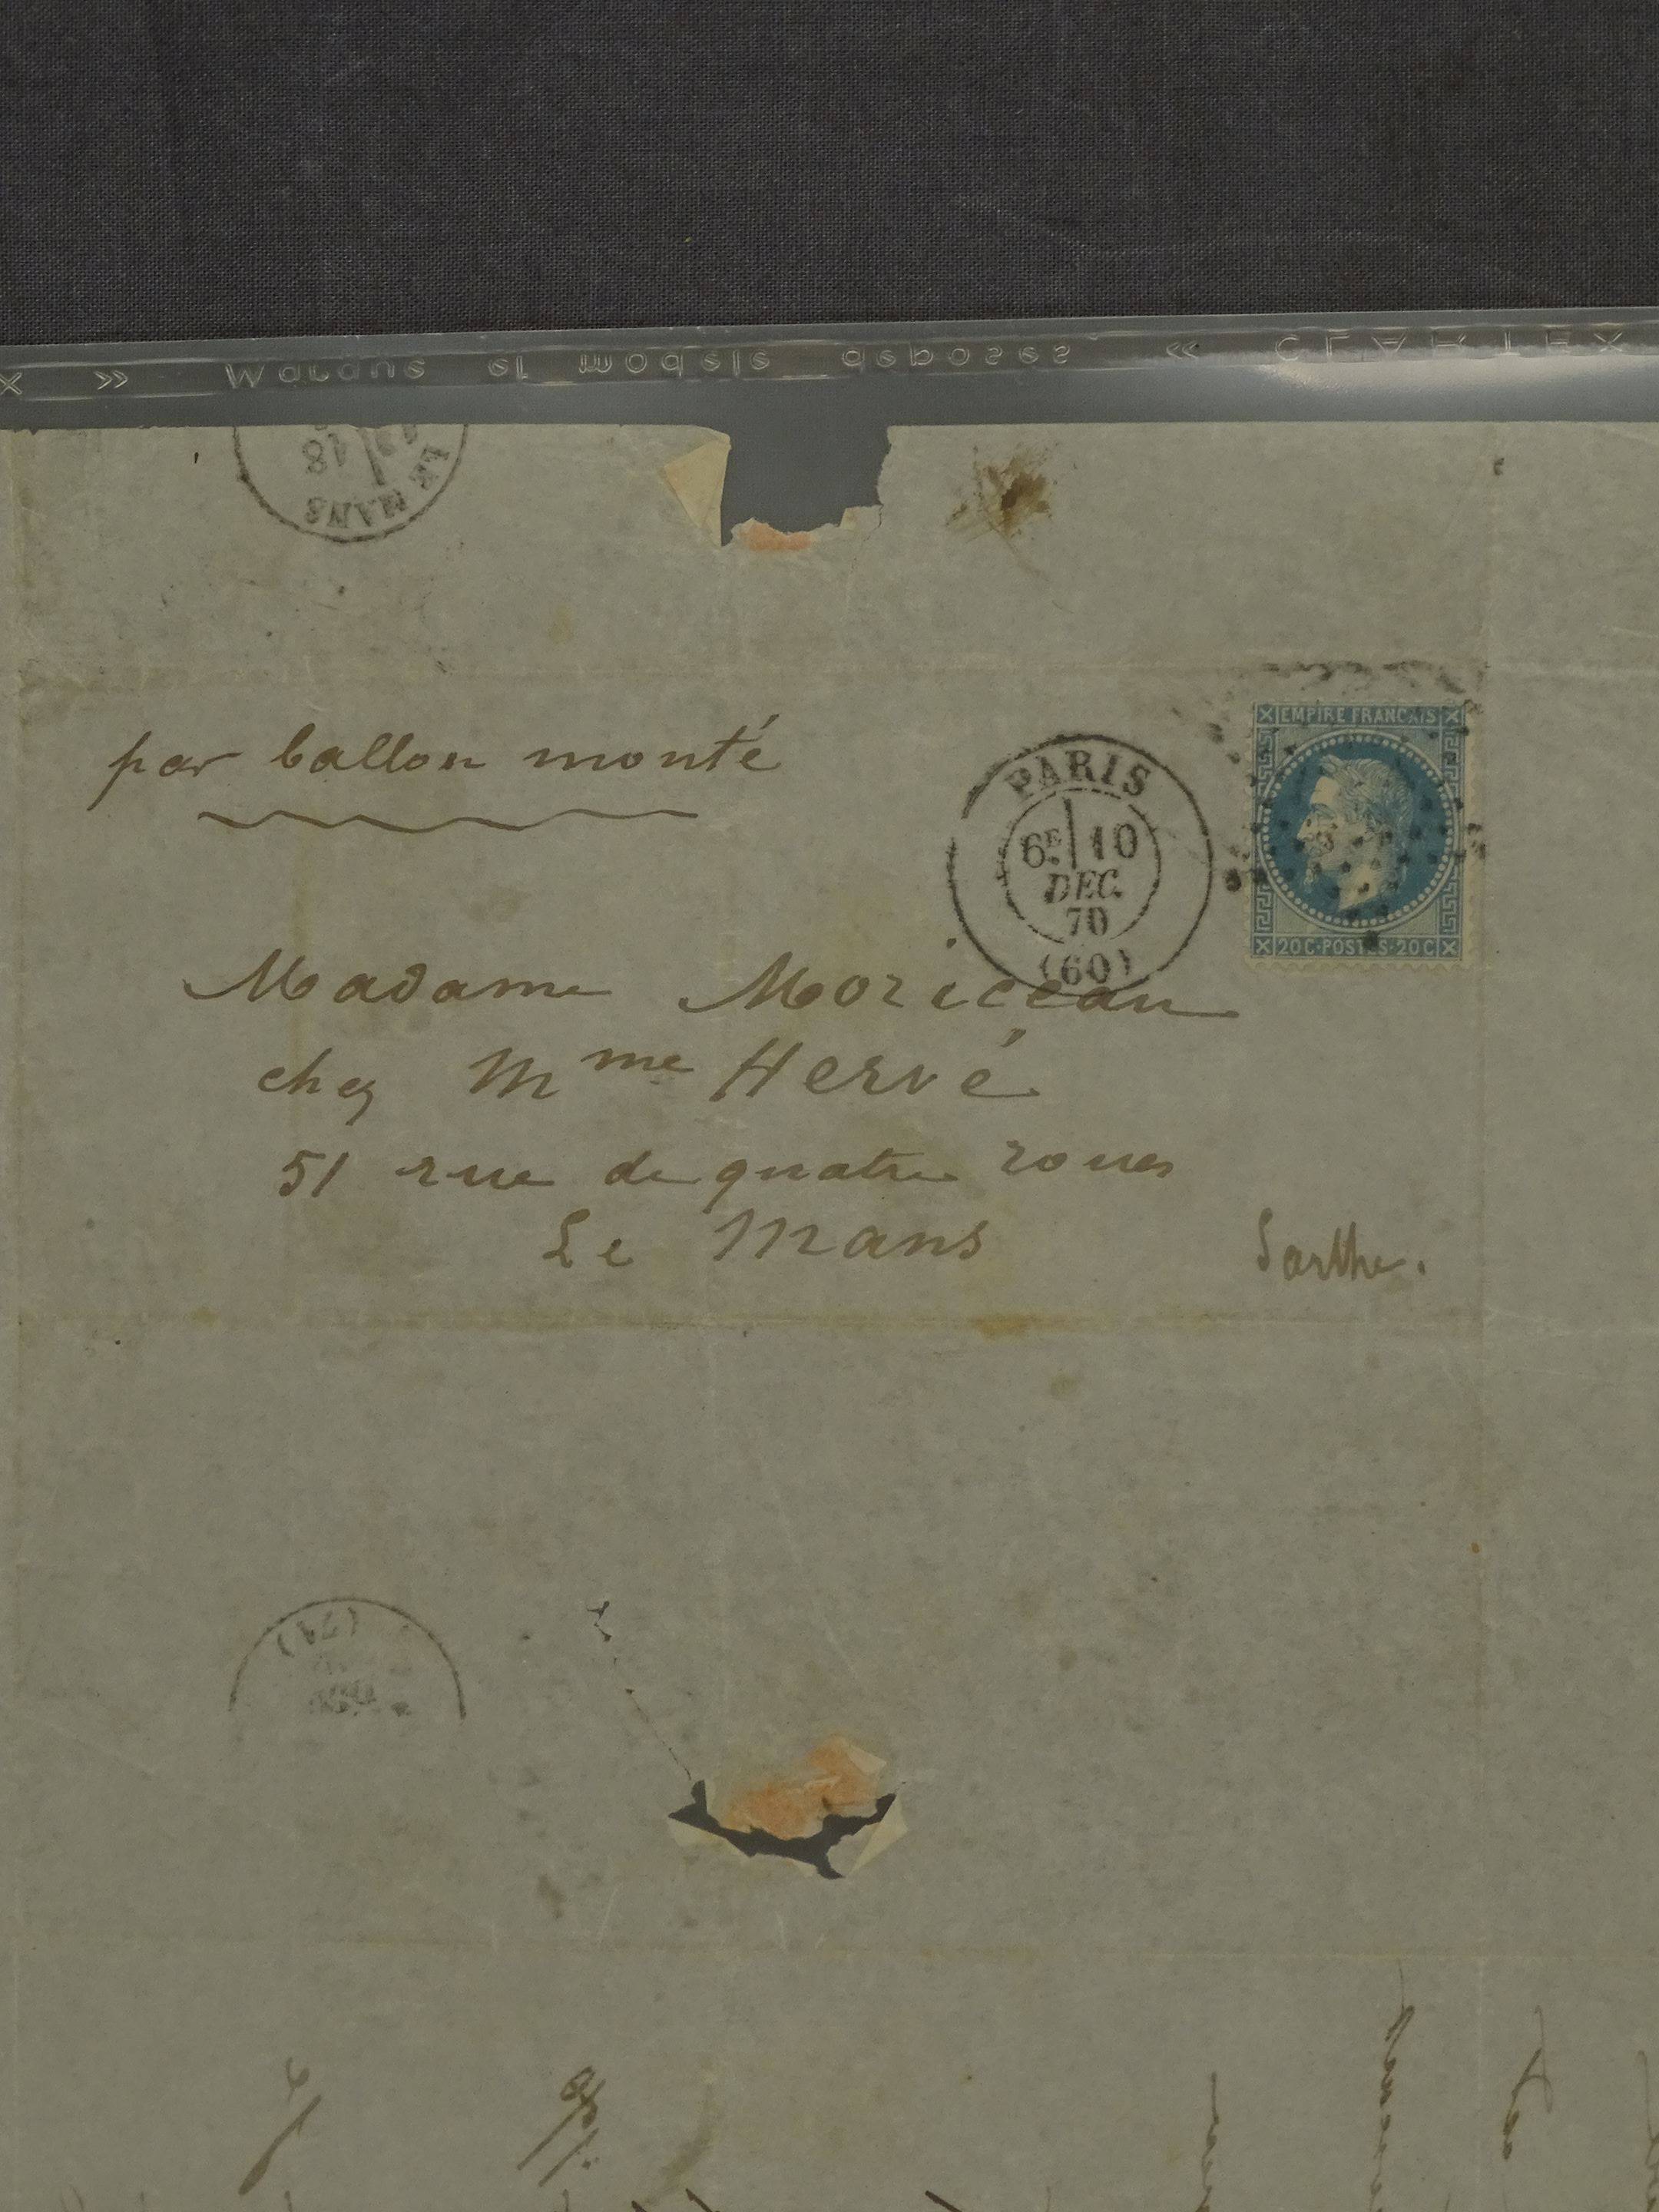 « Marque et modele deposes » CLARTEX
LE MANS
18
par ballon monté
EMPIRE FRANCAIS
20C·POSTES·20C
PARIS
6E 10
DEC.
70
(60)
Madame Moriceau
chez Mme Hervé
51 rue de quatre roues
Le Mans Sarthe.
(71)